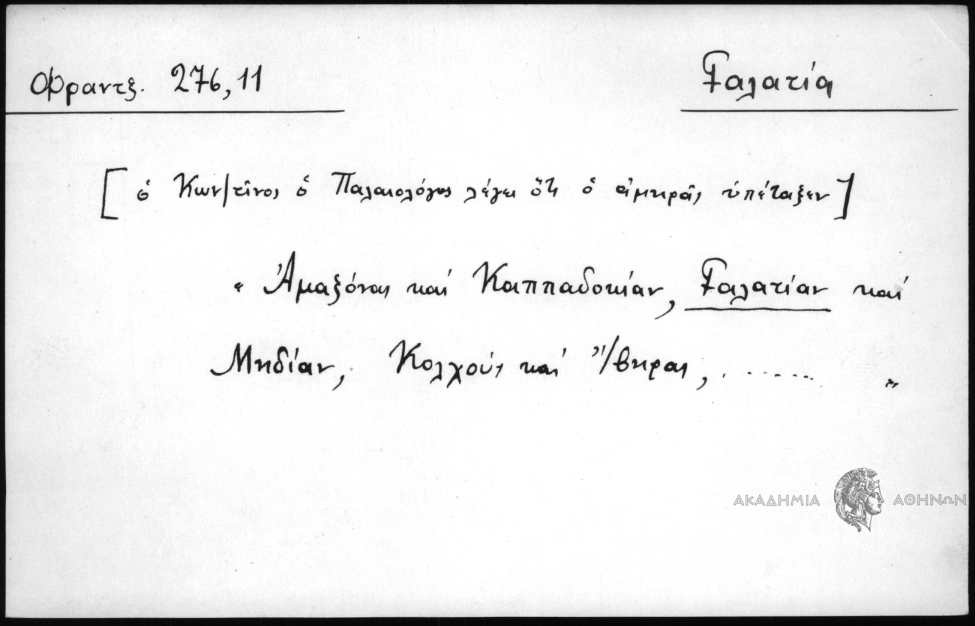 Φραντζ. 276,11
Γαλατία
[ὁ Κων/τῖνος ὁ Παλαιολόγος λέγει ὅτι ὁ ἀμηρᾶς ὑπέταξεν]
" Ἀμαζόνας καὶ Καππαδοκίαν, Γαλατίαν καὶ
Μηδίαν, Κολχοὺς καὶ Ἴβηρας, ....... "
ΑΚΑΔΗΜΙΑ ΑΘΗΝΩΝ